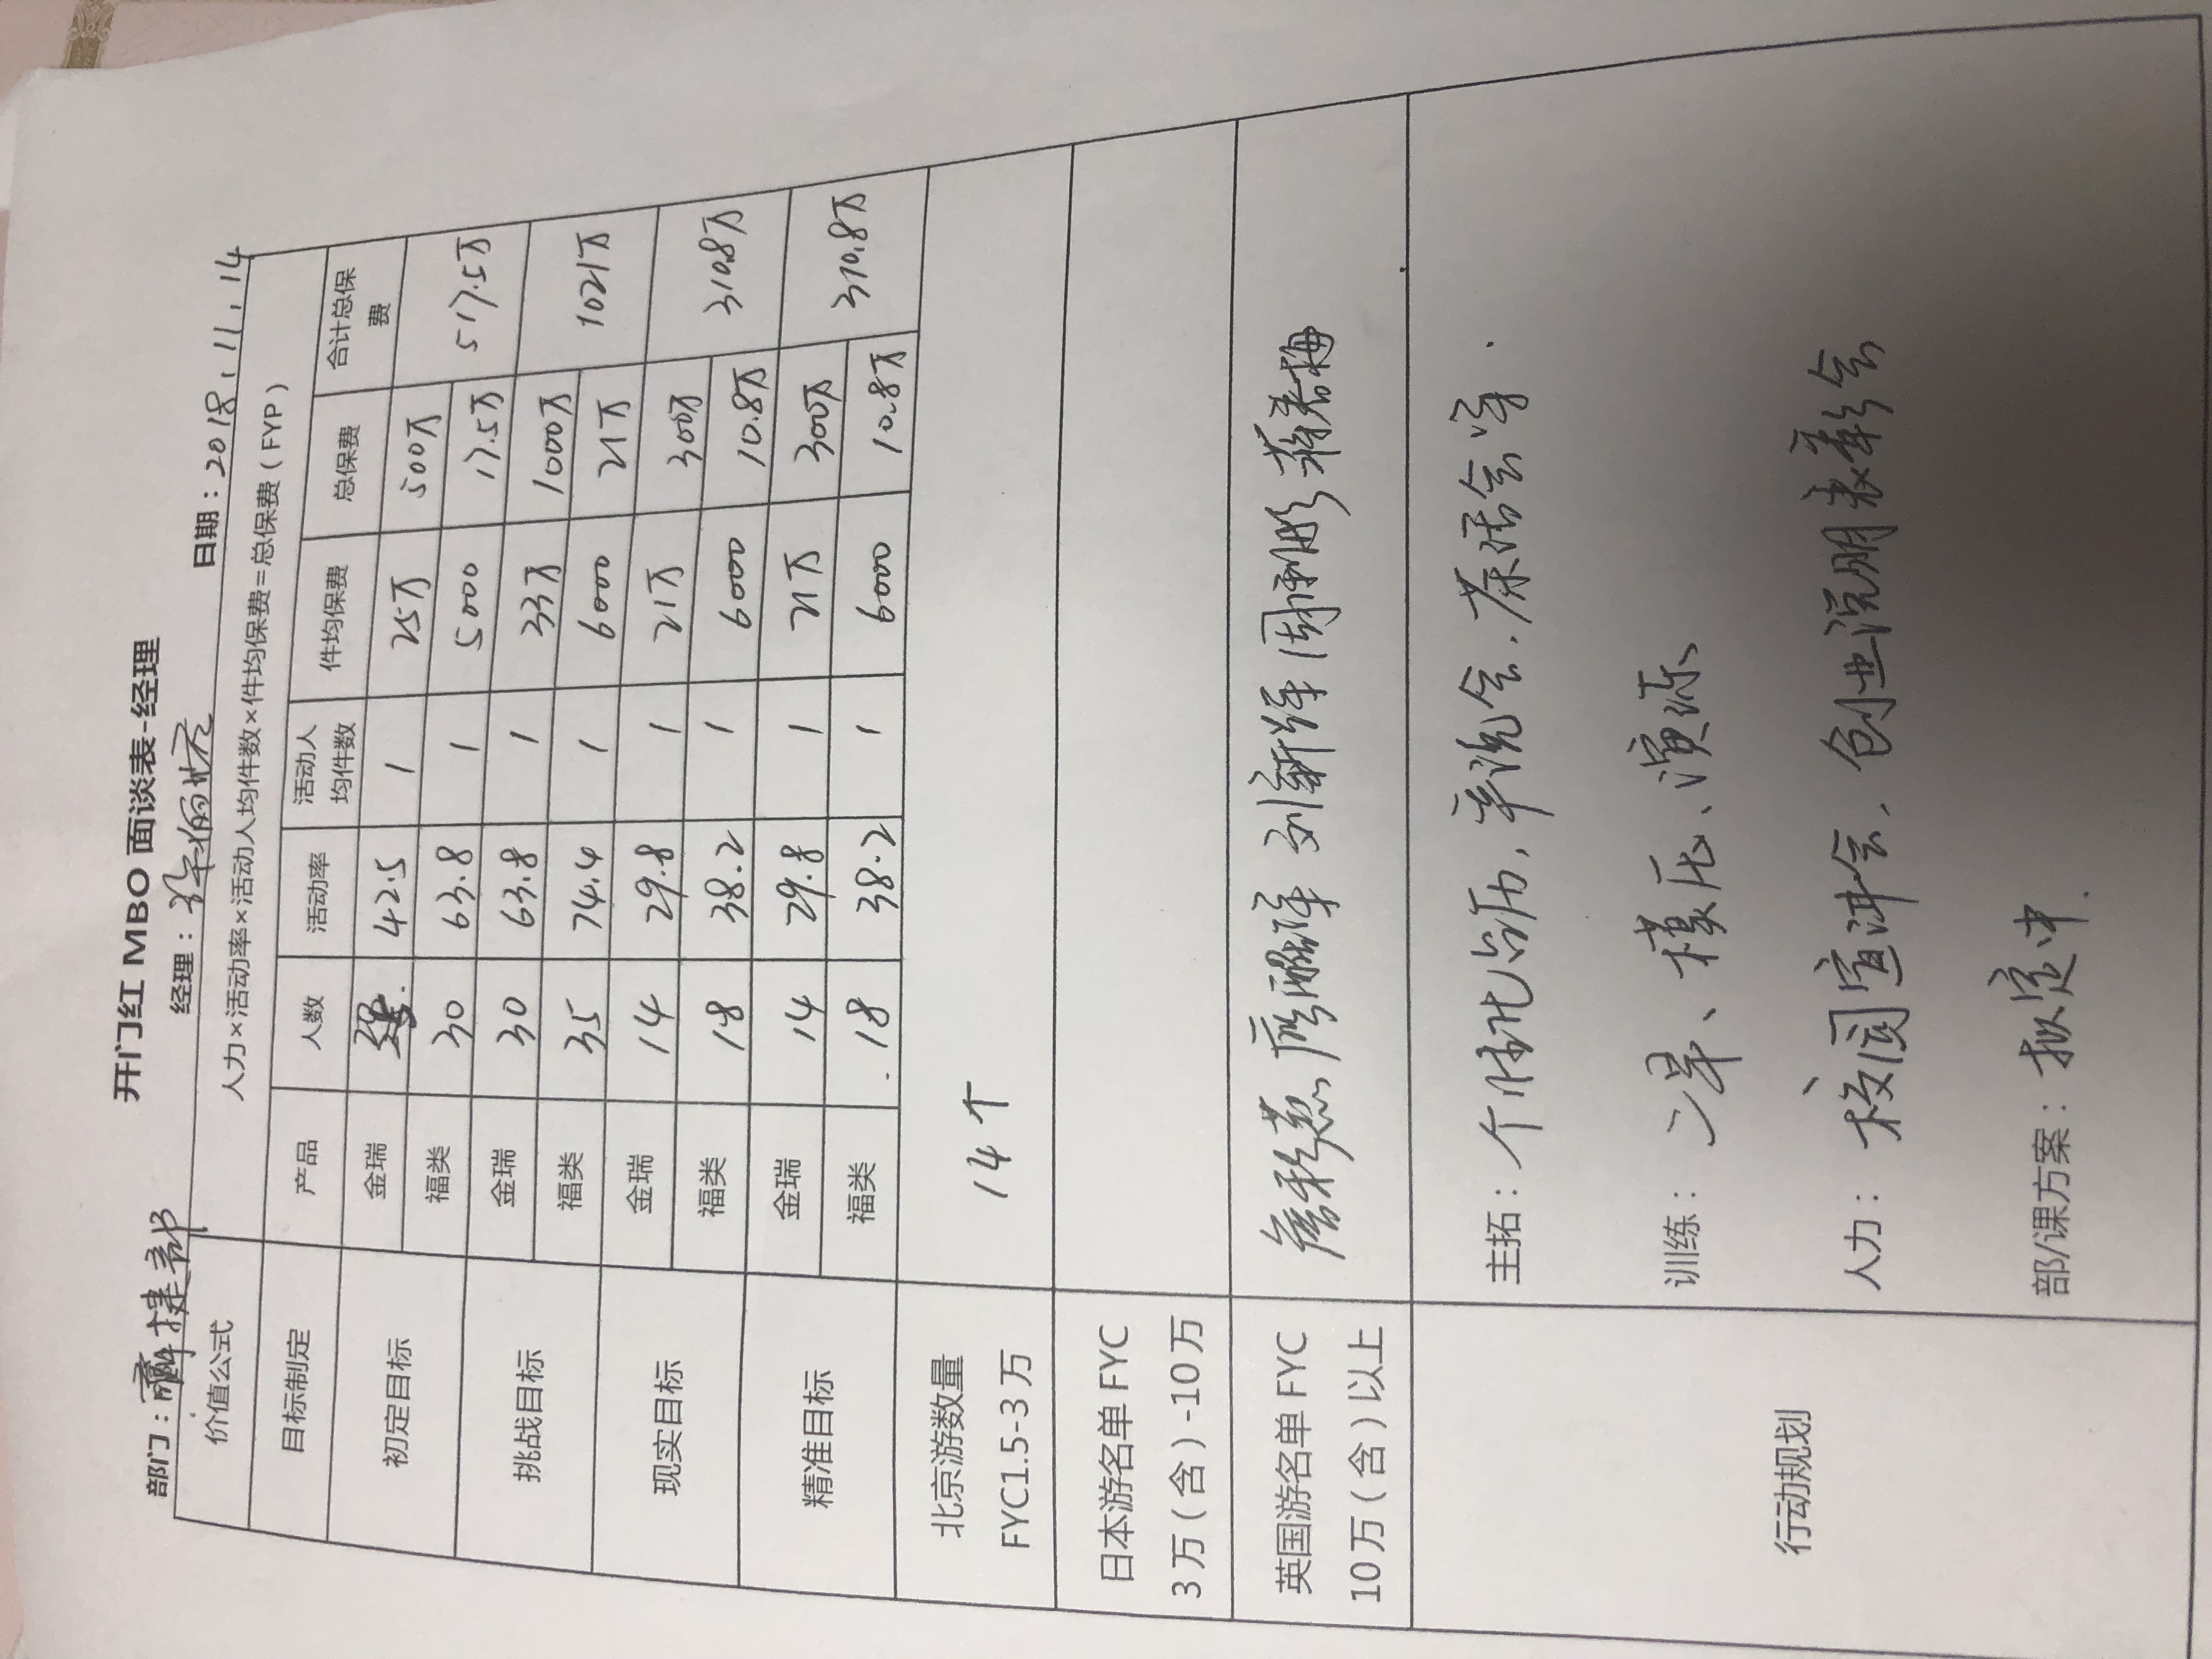 开门红 MBO 面谈表-经理
部门： 经理： 日期：2018.11.14
价值公式 人力×活动率×活动人均件数×件均保费=总保费（FYP）
目标制定 产品 人数 活动率 活动人均件数 件均保费 总保费 合计总保费
初定目标 金瑞 42.5 1 25万 500万 517.5万
福类 30 63.8 1 5000 17.5万
挑战目标 金瑞 30 63.8 1 33万 1000万 1021万
福类 35 74.4 1 6000 21万
现实目标 金瑞 14 29.8 1 21万 300万 310.8万
福类 18 38.2 1 6000 10.8万
精准目标 金瑞 14 29.8 1 21万 300万 310.8万
福类 18 38.2 1 6000 10.8万
北京游数量 14个
FYC1.5-3万
日本游名单 FYC
3万（含）-10万
英国游名单 FYC
10万（含）以上
行动规划
主拓：个性化 产说会.茶话会
训练：二早、模压、演练
人力：校园宣讲会、创业说明会
部/课方案：拟定中.